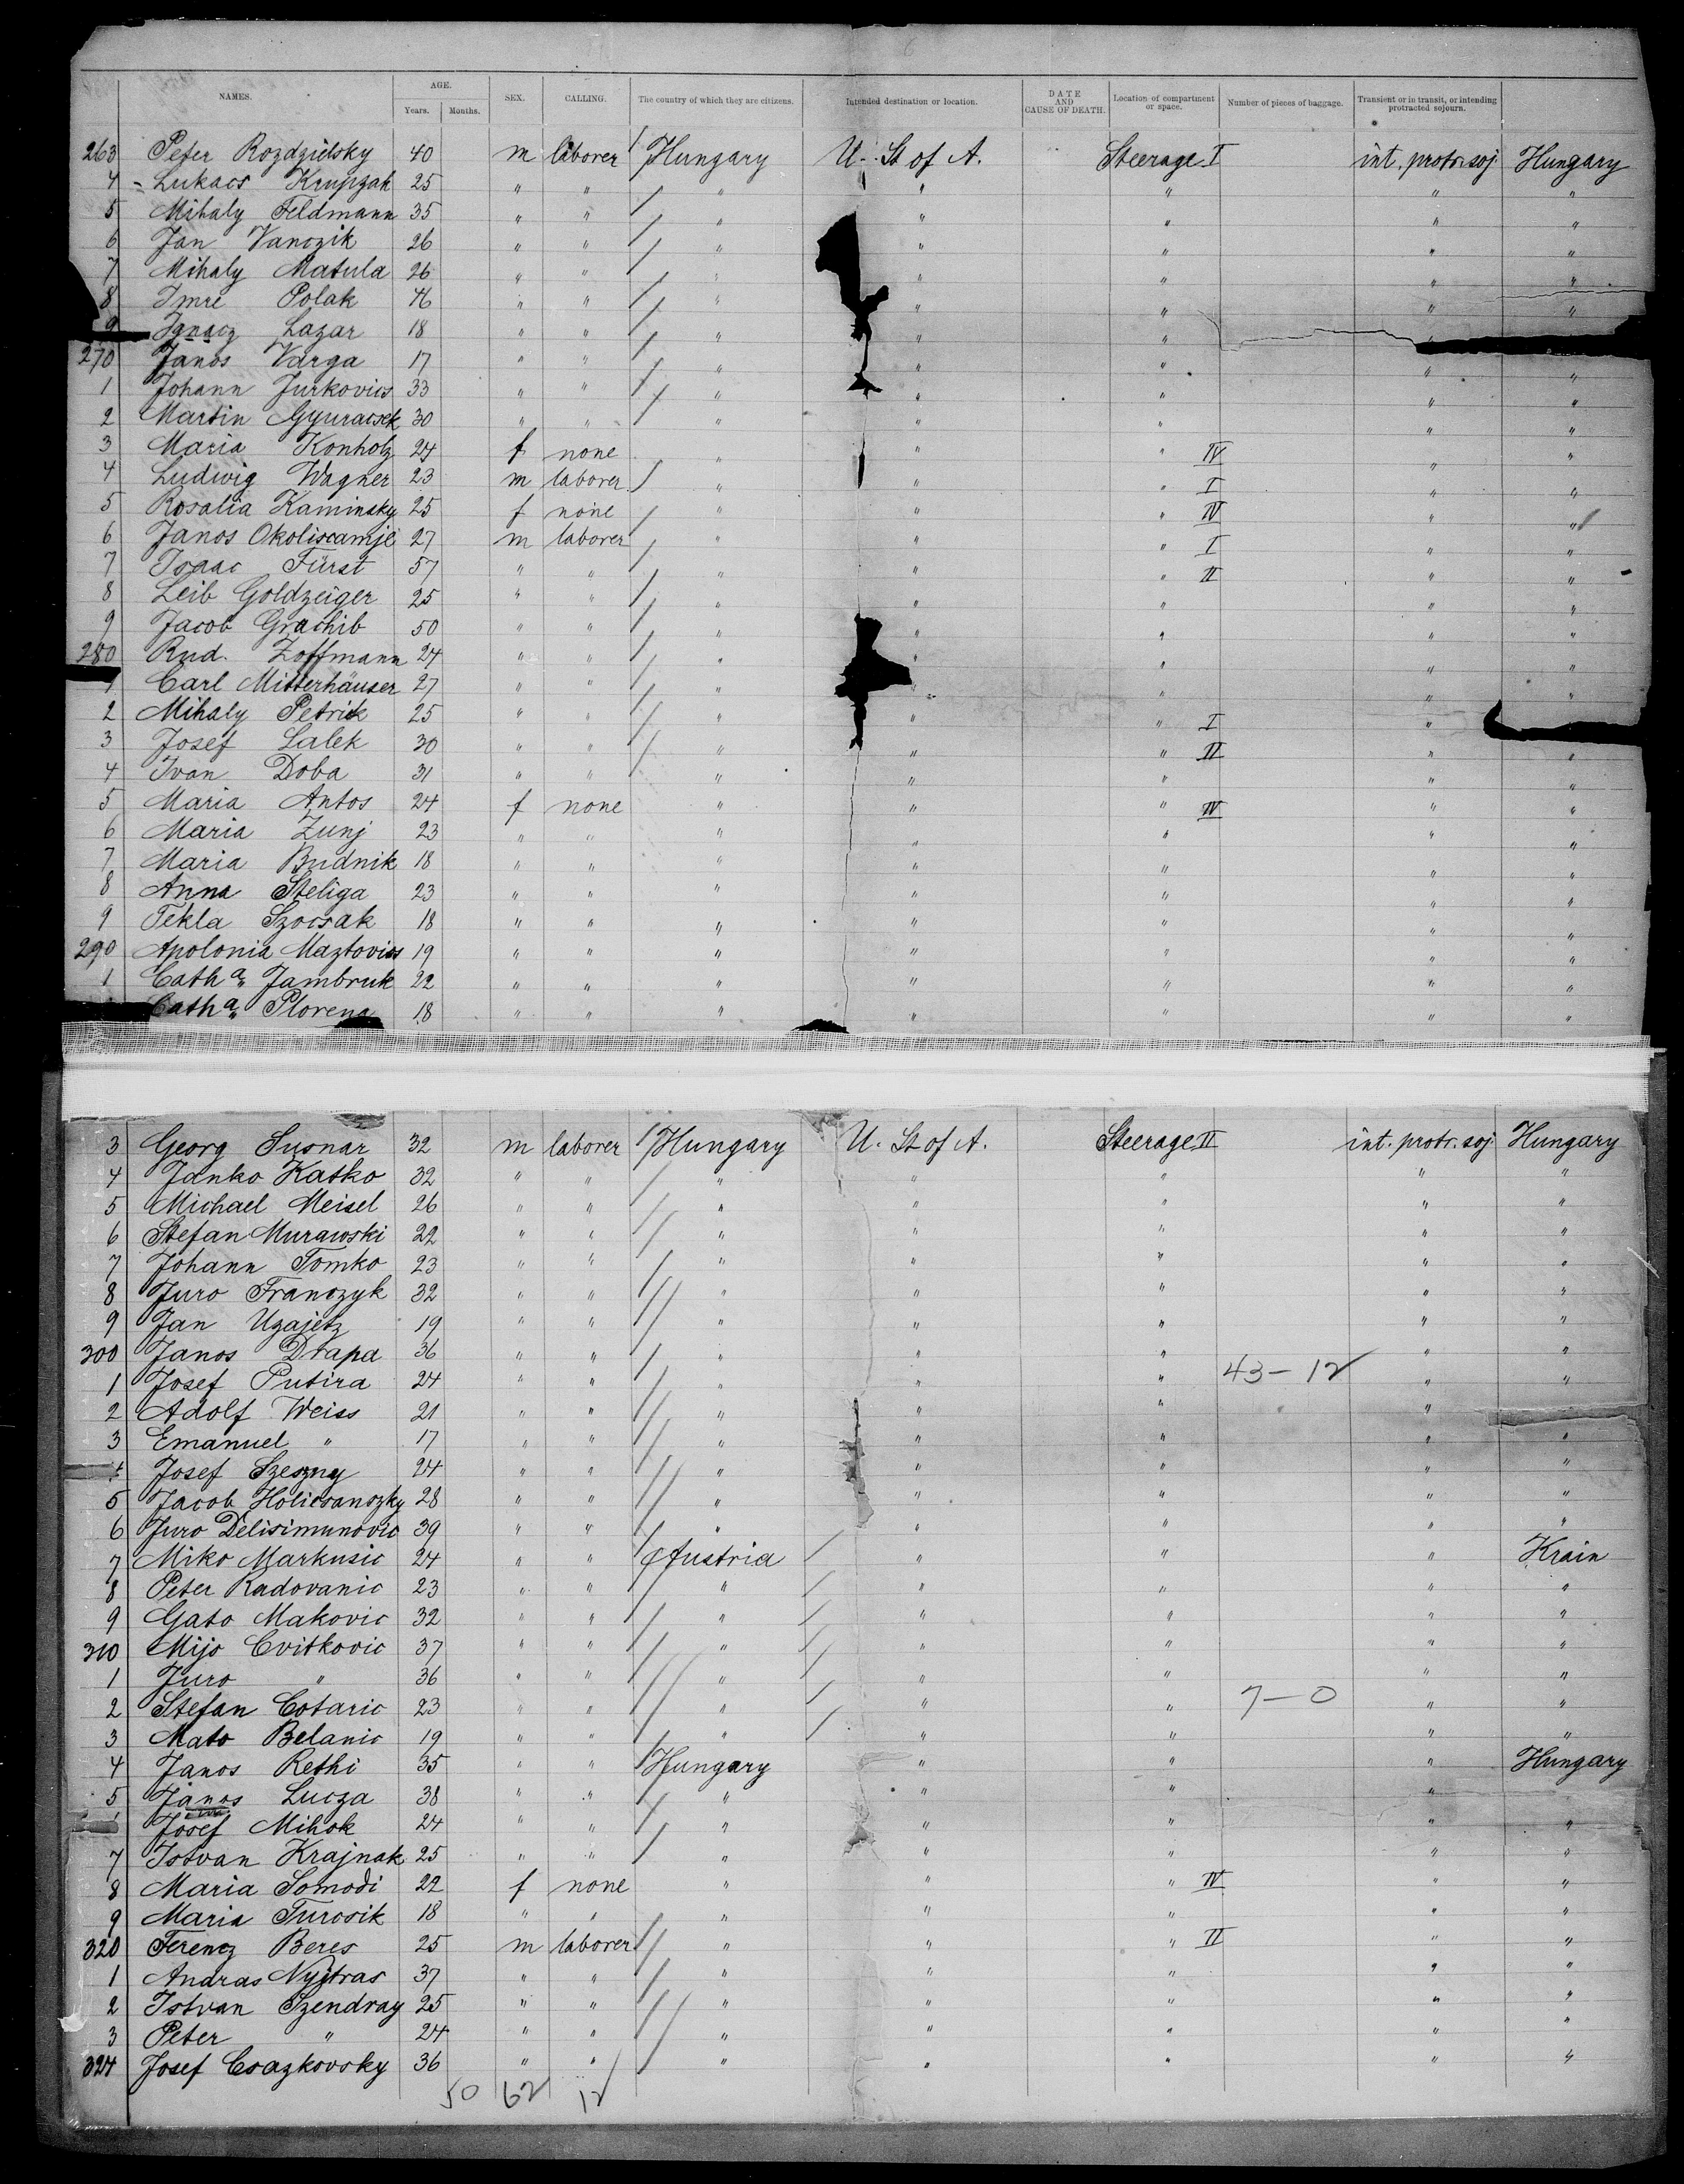 6
NAMES. AGE. Years. Months. SEX. CALLING. The country of which they are citizens. Intended destination or location. DATE AND CAUSE OF DEATH. Location of compartment or space. Number of pieces of baggage. Transient or in transit, or intending protracted sojourn.
263 Peter Rozdzielsky 40 m laborer Hungary U. St of A. Steerage I int. protr. soj. Hungary
4 Lukacs Krupzak 25 " " " " " " "
5 Mihaly Feldmann 35 " " " " " " "
6 Jan Vanczik 26 " " " " " " "
7 Mihaly Matula 26 " " " " " " "
8 Imre Polak 46 " " " " " " "
9 Ignacz Lazar 18 " " " " " "
270 Janos Varga 17 " " " " " " "
1 Johann Jurkovics 33 " " " " " " "
2 Martin Gyuracsek 30 " " " " " " "
3 Maria Konholz 24 f none " " " IV " "
4 Ludwig Wagner 23 m laborer " " " I " "
5 Rosalia Kaminsky 25 f none " " " IV " "
6 Janos Okoliscanije 27 m laborer " " " I " "
7 Isaac Fürst 57 " " " " " II " "
8 Leib Goldzeiger 25 " " " " " " "
9 Jacob Grachib 50 " " " " " " "
280 Rud. Zoffmann 24 " " " " " " "
1 Carl Mitterhäuser 27 " " " " " " "
2 Mihaly Petrick 25 " " " " " I "
3 Josef Lalek 30 " " " " " II " "
4 Ivan Doba 31 " " " " " " "
5 Maria Antos 24 f none " " " IV " "
6 Maria Zunj 23 " " " " " " "
7 Maria Budnik 18 " " " " " " "
8 Anna Steliga 23 " " " " " " "
9 Tekla Szocsak 18 " " " " " " "
290 Apolonia Maztovics 19 " " " " " " "
1 Catha Jambruk 22 " " " " " " "
Catha Plorena 18 " " " " " " "
3 Georg Susnar 32 m laborer Hungary U. St of A. Steerage II int. protr. soj. Hungary
4 Janko Katko 32 " " " " " " "
5 Michael Meisel 26 " " " " " " "
6 Stefan Murawski 22 " " " " " " "
7 Johann Tomko 23 " " " " " " "
8 Juro Franczyk 32 " " " " " " "
9 Jan Uzajetz 19 " " " " " " "
300 Janos Drapa 36 " " " " " " "
1 Josef Putira 24 " " " " " 43-12 " "
2 Adolf Weiss 21 " " " " " "
3 Emanuel " 17 " " " " " " "
4 Josef Szeszny 24 " " " " " " "
5 Jacob Holicsanszky 28 " " " " " " "
6 Juro Delisimunovic 39 " " " " " " "
7 Miko Markusic 24 " " Austria " " " Krain
8 Peter Radovanic 23 " " " " " " "
9 Gato Makovic 32 " " " " " " "
310 Mijo Cvitkovic 37 " " " " " " "
1 Juro " 36 " " " " " " "
2 Stefan Cotaric 23 " " " " " 7-0 " "
3 Mato Belanic 19 " " " " " " "
4 Janos Rethi 35 " " Hungary " " " Hungary
5 Janos Lucza 38 " " " " " "
Josef Mihok 24 " " " " " " "
7 Istvan Krajnak 25 " " " " " " "
8 Maria Somodi 22 f none " " " IV " "
9 Maria Turcsik 18 " " " " " " "
320 Ferencz Beres 25 m laborer " " " II " "
1 Andras Nyitras 37 " " " " " " "
2 Istvan Szendray 25 " " " " " " "
3 Peter " 24 " " " " " " "
324 Josef Csazkovsky 36 " " " " " " "
50 62 12